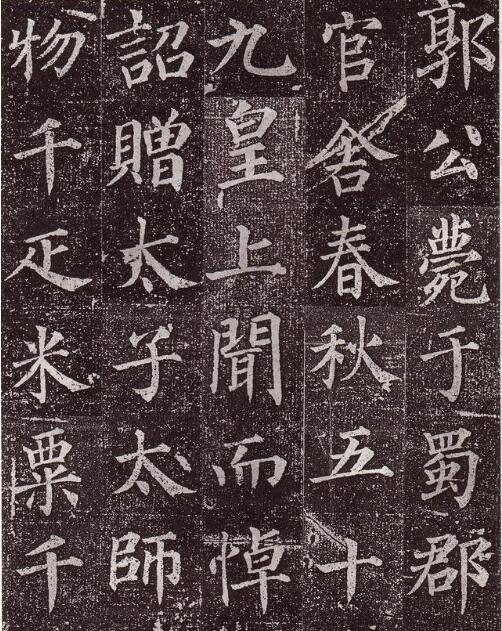 郭公薨于蜀郡
官舍春秋五十
九皇上聞而悼
詔贈太子太師
物千疋米粟千